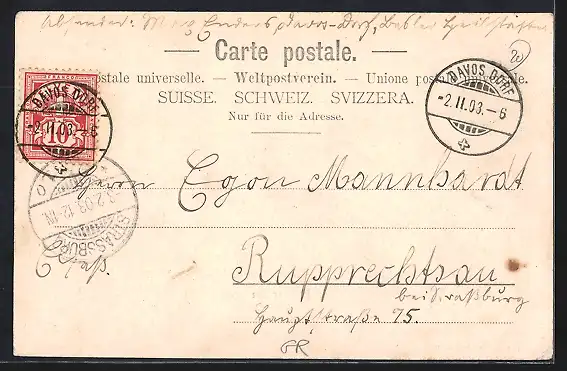 Absender: Marg. Enders, Davos-Dorf, Basler Heilstätte
— Carte postale. —
postale universelle. — Weltpostverein. — Unione postale universale.
SUISSE. SCHWEIZ. SVIZZERA.
Nur für die Adresse.
FRANCO
10
DAVOS DORF
-2.II.03.-6
DAVOS DORF
-2.II.03.-6
STRASSBURG
3.2.03.12-1N
Herrn Egon Mannhardt
Rupprechtsau
bei Straßburg
Hauptstraße 75.
GR